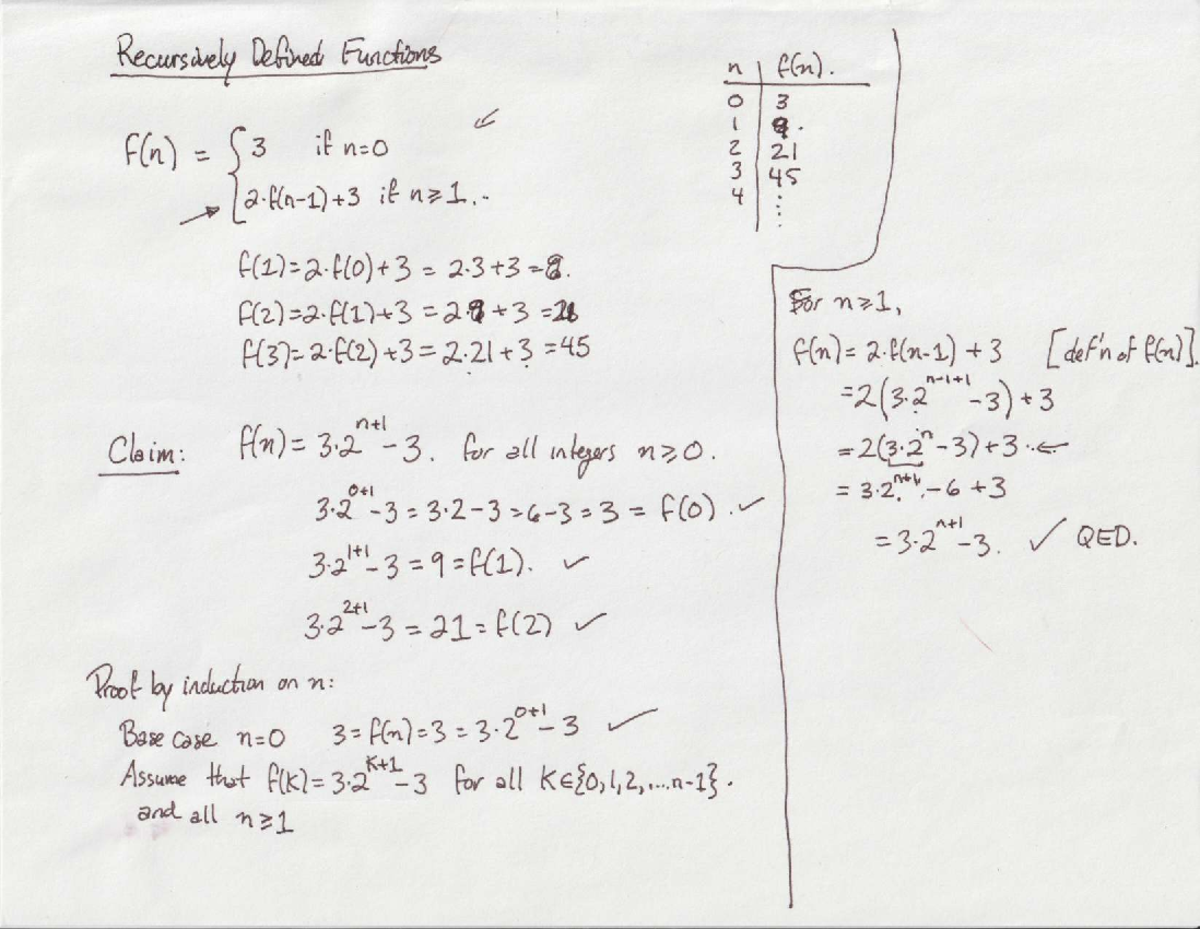 Recursively Defined Functions
f(n) = { 3 if n=0
2·f(n-1)+3 if n≥1..
f(1)=2·f(0)+3 = 2·3+3=9.
f(2)=2·f(1)+3 = 2·9+3 =21
f(3)=2·f(2)+3=2·21+3=45
Claim: f(n)=3·2^(n+1)-3. for all integers n≥0.
3·2^(0+1)-3=3·2-3=6-3=3=f(0). ✓
3·2^(1+1)-3=9=f(1). ✓
3·2^(2+1)-3=21=f(2) ✓
Proof by induction on n:
Base case n=0 3=f(n)=3=3·2^(0+1)-3 ✓
Assume that f(k)=3·2^(k+1)-3 for all k∈{0,1,2,....n-1}.
and all n≥1
n | f(n).
0 | 3
1 | 9.
2 | 21
3 | 45
4 | ⋮
For n≥1,
f(n)=2·f(n-1)+3 [def'n of f(n)].
=2(3·2^(n-1+1)-3)+3
=2(3·2^n-3)+3·←
=3·2^(n+1)-6+3
=3·2^(n+1)-3. ✓ QED.